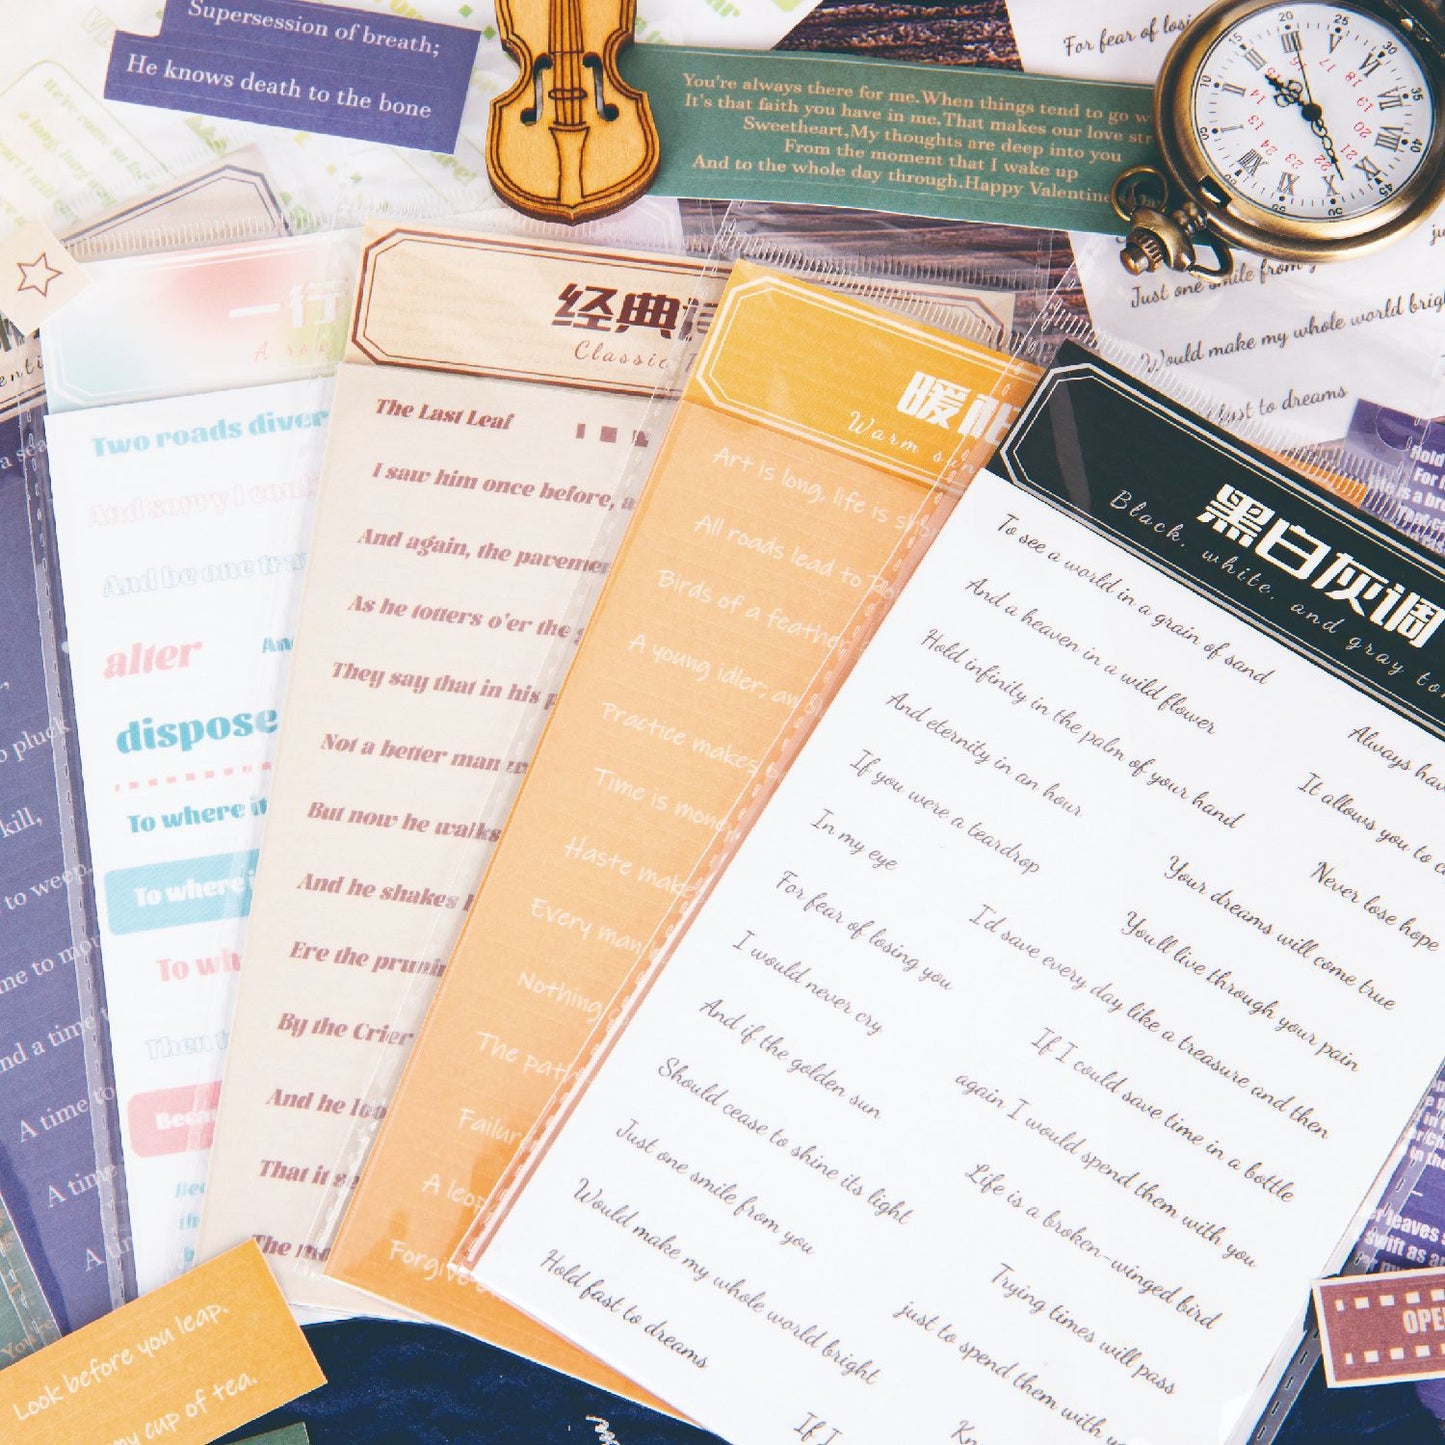 Supersession of breath;
He knows death to the bone
You're always there for me.When things tend to go w
It's that faith you have in me,That makes our love str
Sweetheart,My thoughts are deep into you
From the moment that I wake up
And to the whole day through.Happy Valentine
For fear of losi
Just one smile from
Would make my whole world brigh
just to dreams
一行
经典
Classic
The Last Leaf
I saw him once before, a
And again, the pavemen
As he totters o'er the g
They say that in his p
Not a better man
But now he walks
And he shakes
Ere the prunin
By the Crier
And he loo
That it se
The mo
Two roads diver
And sorry I coul
And be one tra
alter
An
dispose
To where it
To where i
To wh
Then
Beca
Bec
暖
Warm sun
Art is long, life is sho
All roads lead to Ro
Birds of a feather
A young idler; an
Practice makes
Time is mone
Haste make
Every man
Nothing
The pat
Failur
A leop
Forgive
黑白灰调
Black, white, and gray to
To see a world in a grain of sand
And a heaven in a wild flower
Hold infinity in the palm of your hand
And eternity in an hour
If you were a teardrop
In my eye
For fear of losing you
I would never cry
And if the golden sun
Should cease to shine its light
Just one smile from you
Would make my whole world bright
Hold fast to dreams
If I
Always hav
It allows you to c
Never lose hope
Your dreams will come true
You'll live through your pain
I'd save every day like a treasure and then
If I could save time in a bottle
again I would spend them with you
Life is a broken-winged bird
Trying times will pass
just to spend them with y
Kn
o pluck
kill,
to weep,
me to mou
nd a time t
A time to
A tim
A ti
Look before you leap.
my cup of tea.
OPE